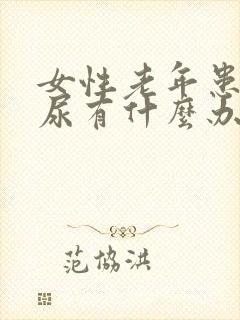 女性老年患
尿有什麼办
范協洪